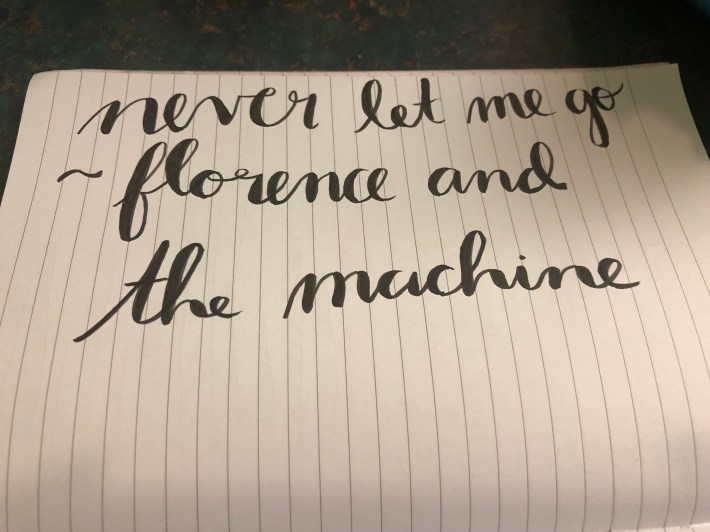 never let me go
~ florence and
the machine